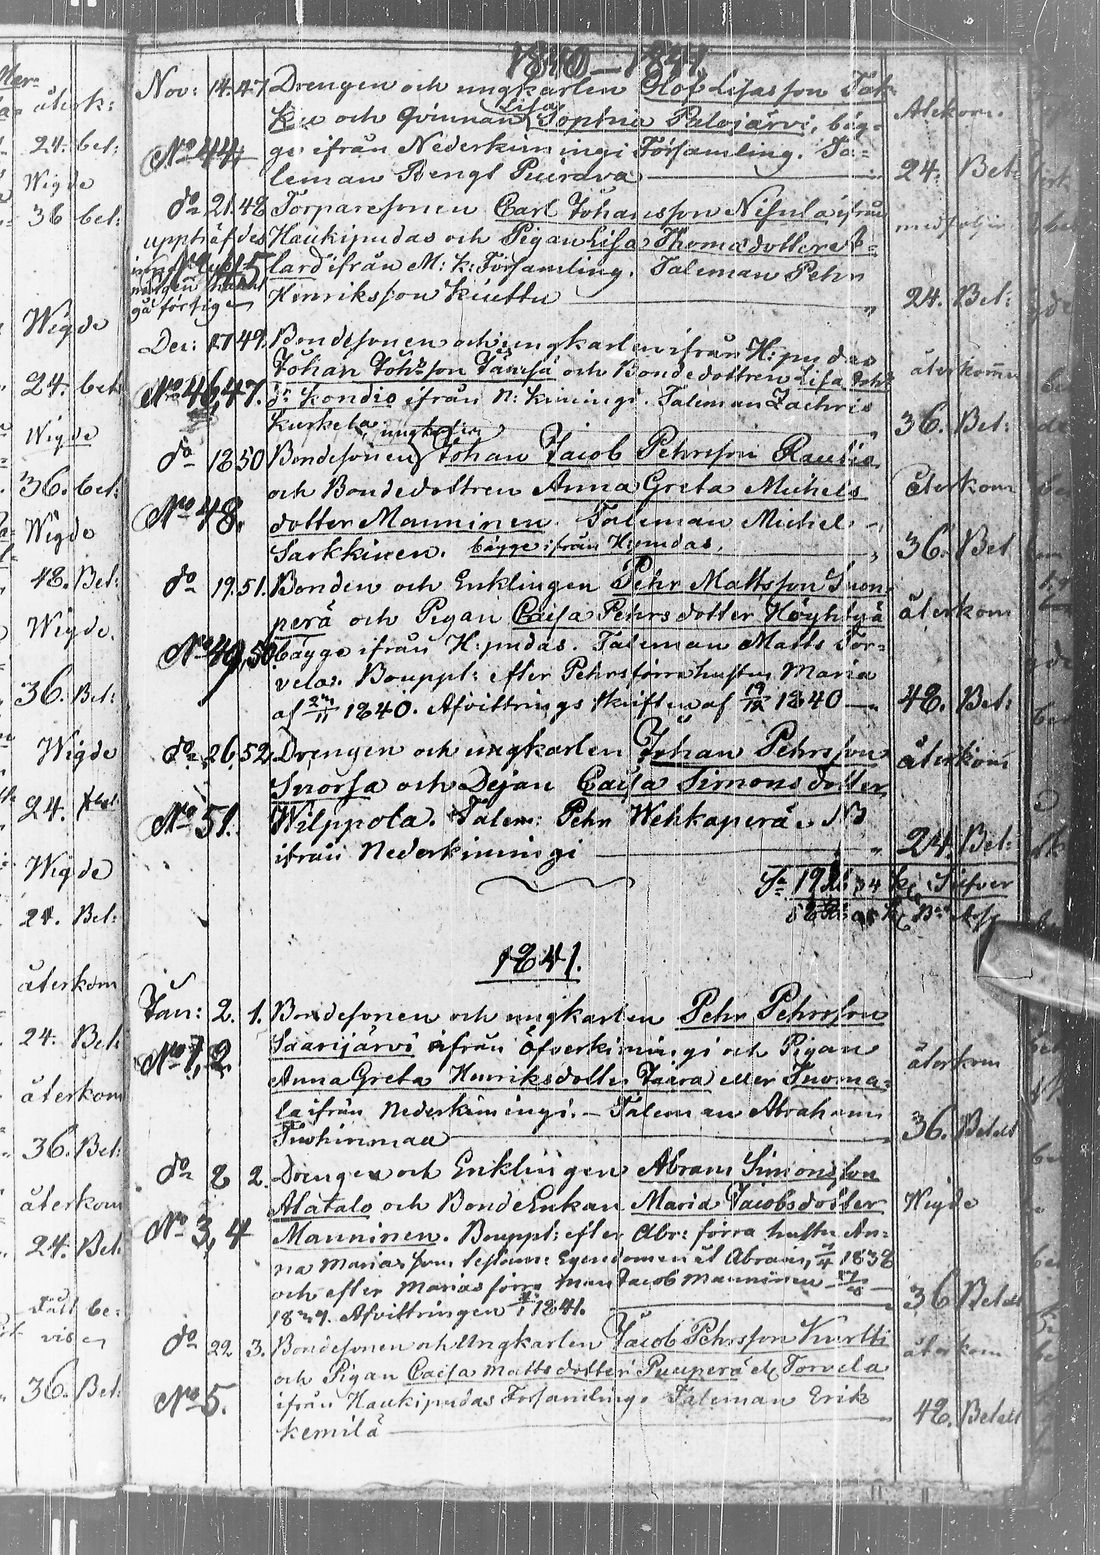 1840–1841.
Nov: 14. 47. Drengen och ungkarlen Olof Lisasson Tak-
ku och Qvinnan Lisa Sophia Palojärvi, bäg- Återkom.
No 44 ge ifrån Nederkimingi Församling. Ta-
leman Bengt Puirava 24. Bet:
do 21. 48. Torparesonen Carl Johansson Nikula ifrån
upphäfdes Haukipudas och Pigan Lisa Thomasdotter
No 45 lard ifrån M: k: Församling. Taleman Pehr
Henriksson Kiuttu 24. Bet:
Dec: 17 49. Bondesonen och ungkarlen ifrån H:pudas
Johan Joh:sson Jämsä och Bondedottren Lisa Joh: återkom
No 46, 47. dr Kondio ifrån N: Kimingi. Taleman Zachris
Kurkela 36. Bet:
do 18 50 Bondesonen ungkarlen Johan Jacob Pehrsson Raudio
och Bondedottren Anna Greta Michels återkom
No 48. dotter Manninen. Taleman Michel
Sarkkinen. bägge ifrån H:pudas. 36. Bet
do 19. 51. Bonden och Enklingen Pehr Mattsson Suon
perä och Pigan Caisa Pehrsdotter Höyhtyä återkom
No 49, 50 bägge ifrån H:pudas. Taleman Matts Tor-
vela. Bouppt: efter Pehrs förra hustru Maria
af 1840. Afvittrings skriften af 19/12 1840 48. Bet:
do 26. 52. Drengen och ungkarlen Johan Pehrsson återkom
Snorsa och Dejan Caisa Simonsdotter
No 51. Wilppola. Talem: Pehr Wehkaperä. NB
ifrån Nederkimingi 24. Bet:
Sa 19 34 k Silfver
1841.
Jan: 2. 1. Bondesonen och ungkarlen Pehr Pehrsson
Saarijärvi ifrån Öfverkimingi och Pigan återkom
No 1, 2. Anna Greta Henriksdotter Jaara eller Tuoma-
la ifrån Nederkimingi. – Taleman Abraham
Tuohinmaa 36. Betalt
do 8 2. Drengen och Enklingen Abram Simonsson
Alatalo och BondeEnkan Maria Jacobsdotter Wigde
No 3, 4 Manninen. Bouppt: efter Abr: förra hustru An-
na Maria som testam: Egendomen åt Abram, 1838
och efter Marias förra man Jacob Manninen
1837. Afvittringen 1841. 36 Betalt
do 22. 3. Bondesonen och Ungkarlen Jacob Pehrsson Kurtti återkom
och Pigan Caisa Mattsdotter Puuperä el: Torvela
No 5. ifrån Haukipudas Församling. Taleman Erik
Kemilä 48. Betalt
återk:
24. bet:
Wigde
36 bet:
Wigde
24. bet:
Wigde
36. bet:
Wigde
48. Bet:
Wigde.
36. Bet:
Wigde
24.
Wigde
24. Bet:
återkom
24. Bet
återkom
36. Bet:
återkom
24. Bet:
36. Bet: